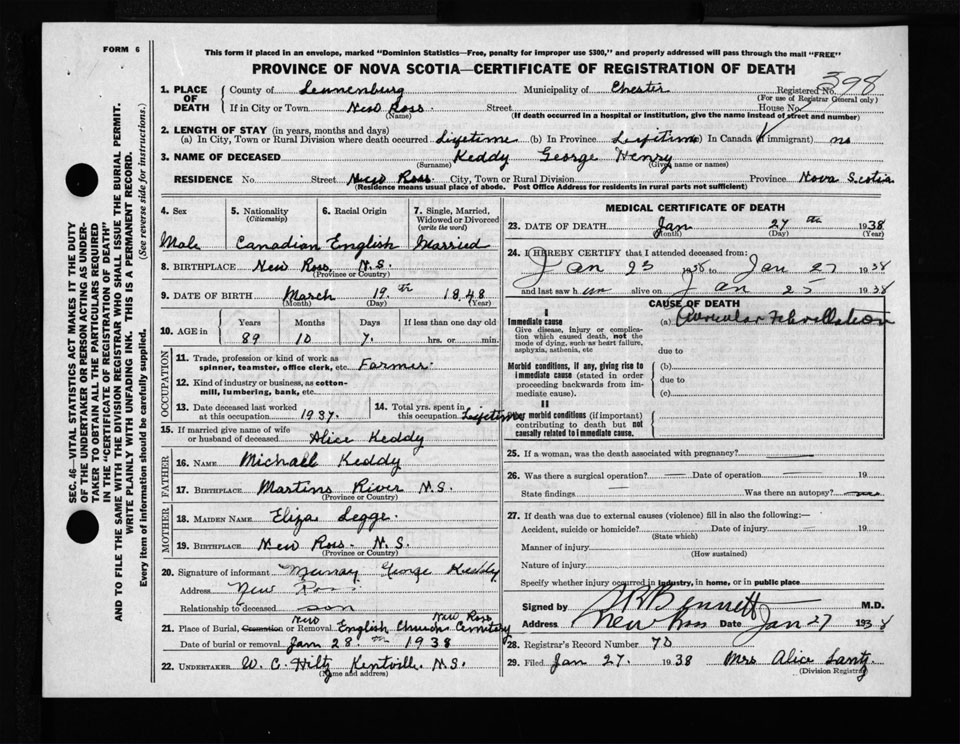 FORM 6
This form if placed in an envelope, marked "Dominion Statistics—Free, penalty for improper use $300," and properly addressed will pass through the mail "FREE"
PROVINCE OF NOVA SCOTIA—CERTIFICATE OF REGISTRATION OF DEATH
398
1. PLACE OF DEATH
County of Lunenburg Municipality of Chester Registered No.
(For use of Registrar General only)
If in City or Town New Ross Street House No.
(Name) (If death occurred in a hospital or institution, give the name instead of street and number)
2. LENGTH OF STAY (in years, months and days)
(a) In City, Town or Rural Division where death occurred Lifetime (b) In Province Lifetime (c) In Canada (if immigrant) no
3. NAME OF DECEASED Keddy George Henry
(Surname) (Given name or names)
RESIDENCE No. Street New Ross City, Town or Rural Division Province Nova Scotia
(Residence means usual place of abode. Post Office Address for residents in rural parts not sufficient)
4. Sex 5. Nationality (Citizenship) 6. Racial Origin 7. Single, Married, Widowed or Divorced (write the word)
Male Canadian English Married
8. BIRTHPLACE New Ross N.S.
(Province or Country)
9. DATE OF BIRTH March 19th 1848
(Month) (Day) (Year)
10. AGE in Years Months Days If less than one day
89 10 hrs. or min.
OCCUPATION
11. Trade, profession or kind of work as spinner, teamster, office clerk, etc. Farmer
12. Kind of industry or business, as cotton-mill, lumbering, bank, etc.
13. Date deceased last worked at this occupation 1937. 14. Total yrs. spent in this occupation Lifetime
15. If married give name of wife or husband of deceased Alice Keddy
FATHER
16. NAME Michael Keddy
17. BIRTHPLACE Martins River N.S.
(Province or Country)
MOTHER
18. MAIDEN NAME Eliza Legge
19. BIRTHPLACE New Ross N.S.
(Province or Country)
20. Signature of informant Murray George Keddy
Address New Ross
Relationship to deceased son
21. Place of Burial, Cremation or Removal New Ross English Church Cemetery
Date of burial or removal Jan 28th 1938
22. UNDERTAKER W. C. Hiltz Kentville N.S.
(Name and address)
MEDICAL CERTIFICATE OF DEATH
23. DATE OF DEATH Jan 27th 1938
(Month) (Day) (Year)
24. I HEREBY CERTIFY that I attended deceased from:
Jan 25 1938 to Jan 27 1938
and last saw him alive on Jan 25 1938
CAUSE OF DEATH
I
Immediate cause (a) Auricular Fibrillation
Give disease, injury or complication which caused death, not the mode of dying, such as heart failure, asphyxia, asthenia, etc
due to
Morbid conditions, if any, giving rise to immediate cause (stated in order proceeding backwards from immediate cause). (b)
due to
(c)
II
Other morbid conditions (if important) contributing to death but not causally related to immediate cause.
25. If a woman, was the death associated with pregnancy?
26. Was there a surgical operation? — Date of operation 19
State findings — Was there an autopsy?
27. If death was due to external causes (violence) fill in also the following:—
Accident, suicide or homicide? Date of injury 19
(State which)
Manner of injury
(How sustained)
Nature of injury
Specify whether injury occurred in industry, in home, or in public place
Signed by Bennett M.D.
Address New Ross Date Jan 27 1938
28. Registrar's Record Number 70
29. Filed Jan 27. 1938 Mrs Alice Lantz
(Division Registrar)
SEC. 46—VITAL STATISTICS ACT MAKES IT THE DUTY
OF THE UNDERTAKER OR PERSON ACTING AS UNDERTAKER
TO OBTAIN ALL THE PARTICULARS REQUIRED
IN THE "CERTIFICATE OF REGISTRATION OF DEATH"
AND TO FILE THE SAME WITH THE DIVISION REGISTRAR WHO SHALL ISSUE THE BURIAL PERMIT.
WRITE PLAINLY WITH UNFADING INK. THIS IS A PERMANENT RECORD.
Every item of information should be carefully supplied. (See reverse side for instructions.)